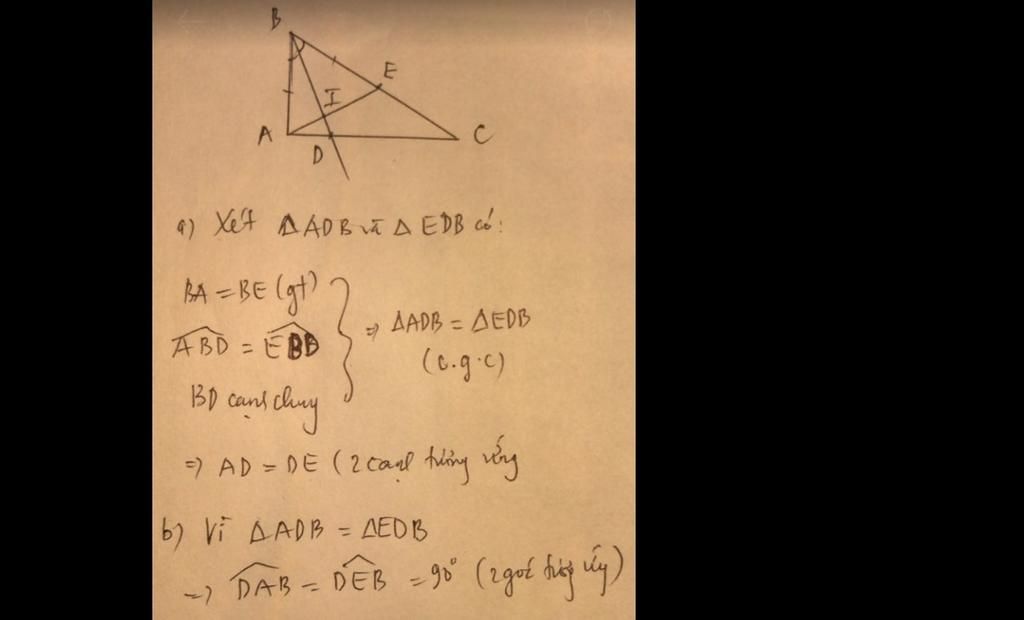 B
E
I
A
D
C
a) Xét ΔADB và ΔEDB có:
BA = BE (gt)
ABD = EBD
BD cạnh chung
=> ΔADB = ΔEDB
(c.g.c)
=> AD = DE (2 cạnh tương ứng
b) Vì ΔADB = ΔEDB
=> DAB = DEB = 90° (2 góc tương ứng)